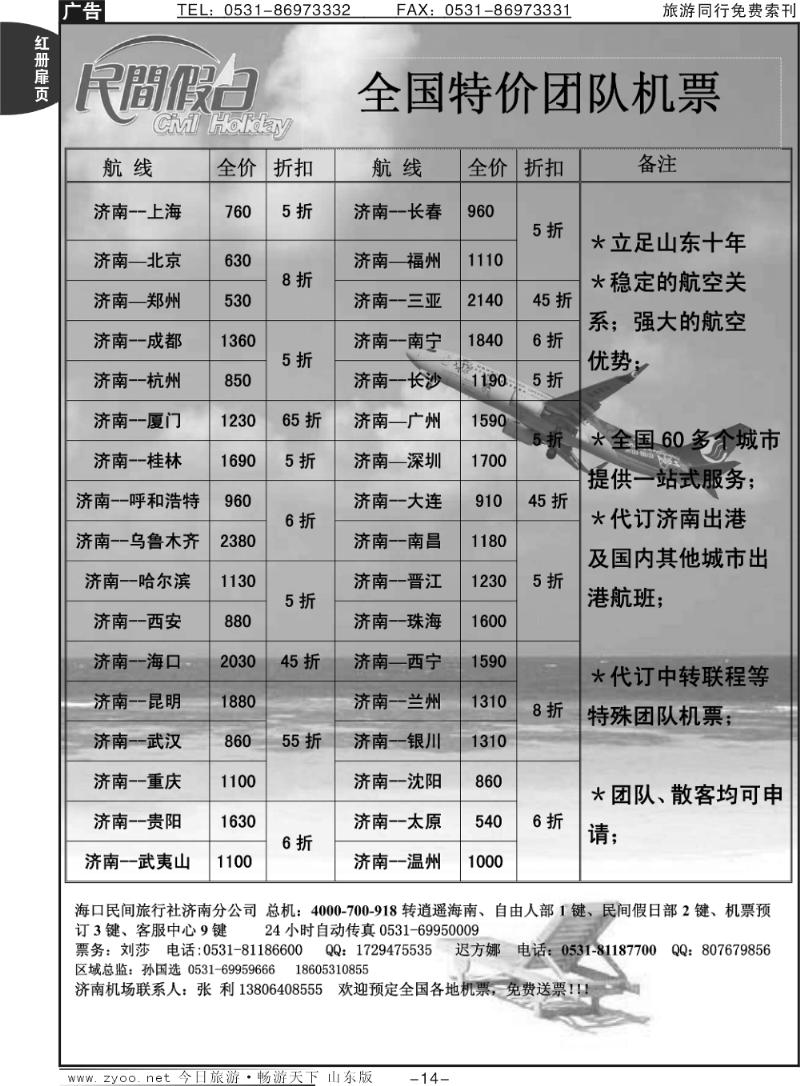 广告 TEL：0531-86973332 FAX：0531-86973331 旅游同行免费索刊
红册扉页
民間假日
Civil Holiday
全国特价团队机票
航 线 全价 折扣 航 线 全价 折扣 备注
济南--上海 760 5 折 济南--长春 960 5 折
济南—北京 630 8 折 济南—福州 1110
济南—郑州 530 济南--三亚 2140 45 折
济南--成都 1360 5 折 济南--南宁 1840 6 折
济南--杭州 850 济南--长沙 1190 5 折
济南--厦门 1230 65 折 济南—广州 1590 5 折
济南--桂林 1690 5 折 济南—深圳 1700
济南--呼和浩特 960 6 折 济南--大连 910 45 折
济南--乌鲁木齐 2380 济南--南昌 1180 5 折
济南--哈尔滨 1130 5 折 济南--晋江 1230
济南--西安 880 济南--珠海 1600
济南--海口 2030 45 折 济南—西宁 1590 8 折
济南--昆明 1880 55 折 济南--兰州 1310
济南--武汉 860 济南--银川 1310
济南--重庆 1100 济南--沈阳 860 6 折
济南--贵阳 1630 6 折 济南--太原 540
济南--武夷山 1100 济南--温州 1000
＊立足山东十年
＊稳定的航空关
系；强大的航空
优势；
＊全国 60 多个城市
提供一站式服务；
＊代订济南出港
及国内其他城市出
港航班；
＊代订中转联程等
特殊团队机票；
＊团队、散客均可申
请；
海口民间旅行社济南分公司 总机：4000-700-918 转逍遥海南、自由人部 1 键、民间假日部 2 键、机票预
订 3 键、客服中心 9 键 24 小时自动传真 0531-69950009
票务：刘莎 电话:0531-81186600 QQ：1729475535 迟方娜 电话：0531-81187700 QQ：807679856
区域总监：孙国选 0531-69959666 18605310855
济南机场联系人：张 利 13806408555 欢迎预定全国各地机票，免费送票!!!
www.zyoo.net 今日旅游·畅游天下 山东版 -14-